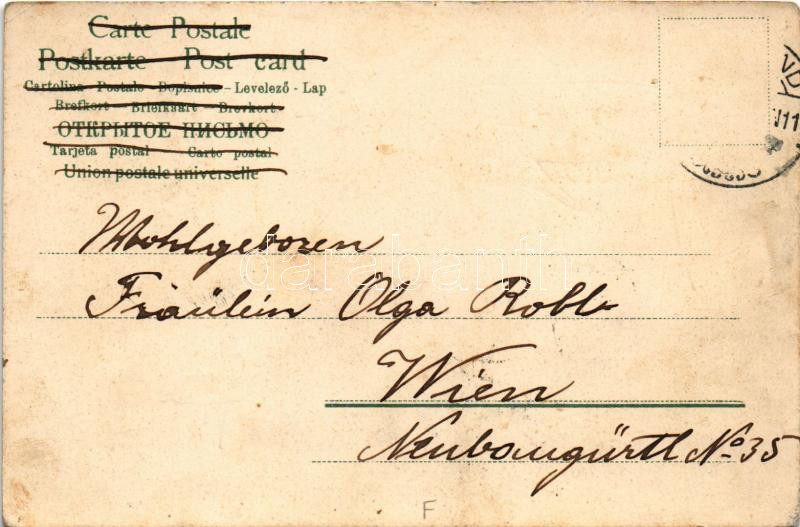 Carte Postale
Postkarte Post card
Cartolina Postale - Dopisnice - Levelező - Lap
Brefkort - Briefkaart - Brevkort
ОТКРЫТОЕ ПИСЬМО
Tarjeta postal Carto postal
Union postale universelle
Wohlgeboren
darabanth
Fräulein Olga Robl
Wien
Neubaugürtl No 35
F